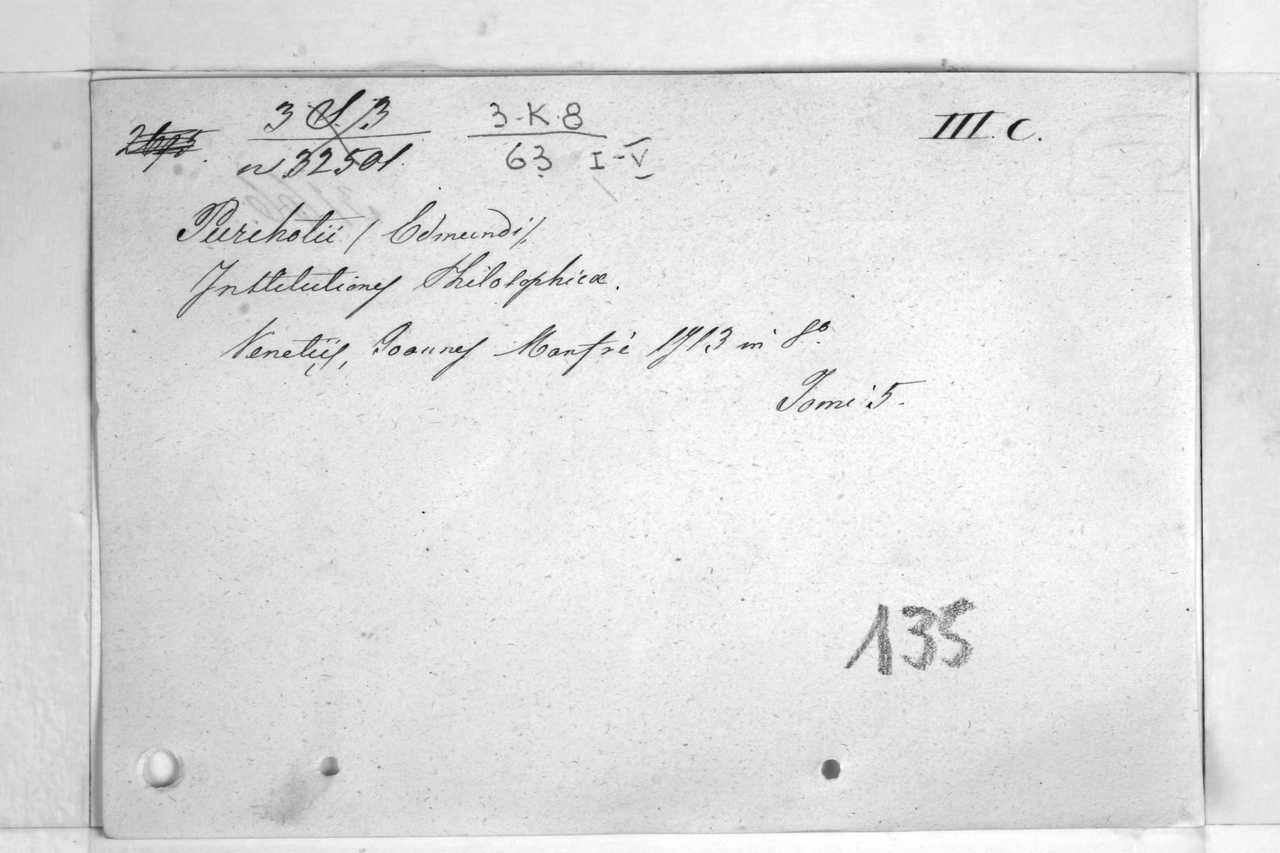 3-K-8
63 I-V
III. C.
n 32501.
Purchotii / Edmundi /.
Institutiones Philosophicæ.
Venetiis, Joannes Manfrè 1713 in 8º
Tomi 5.
135